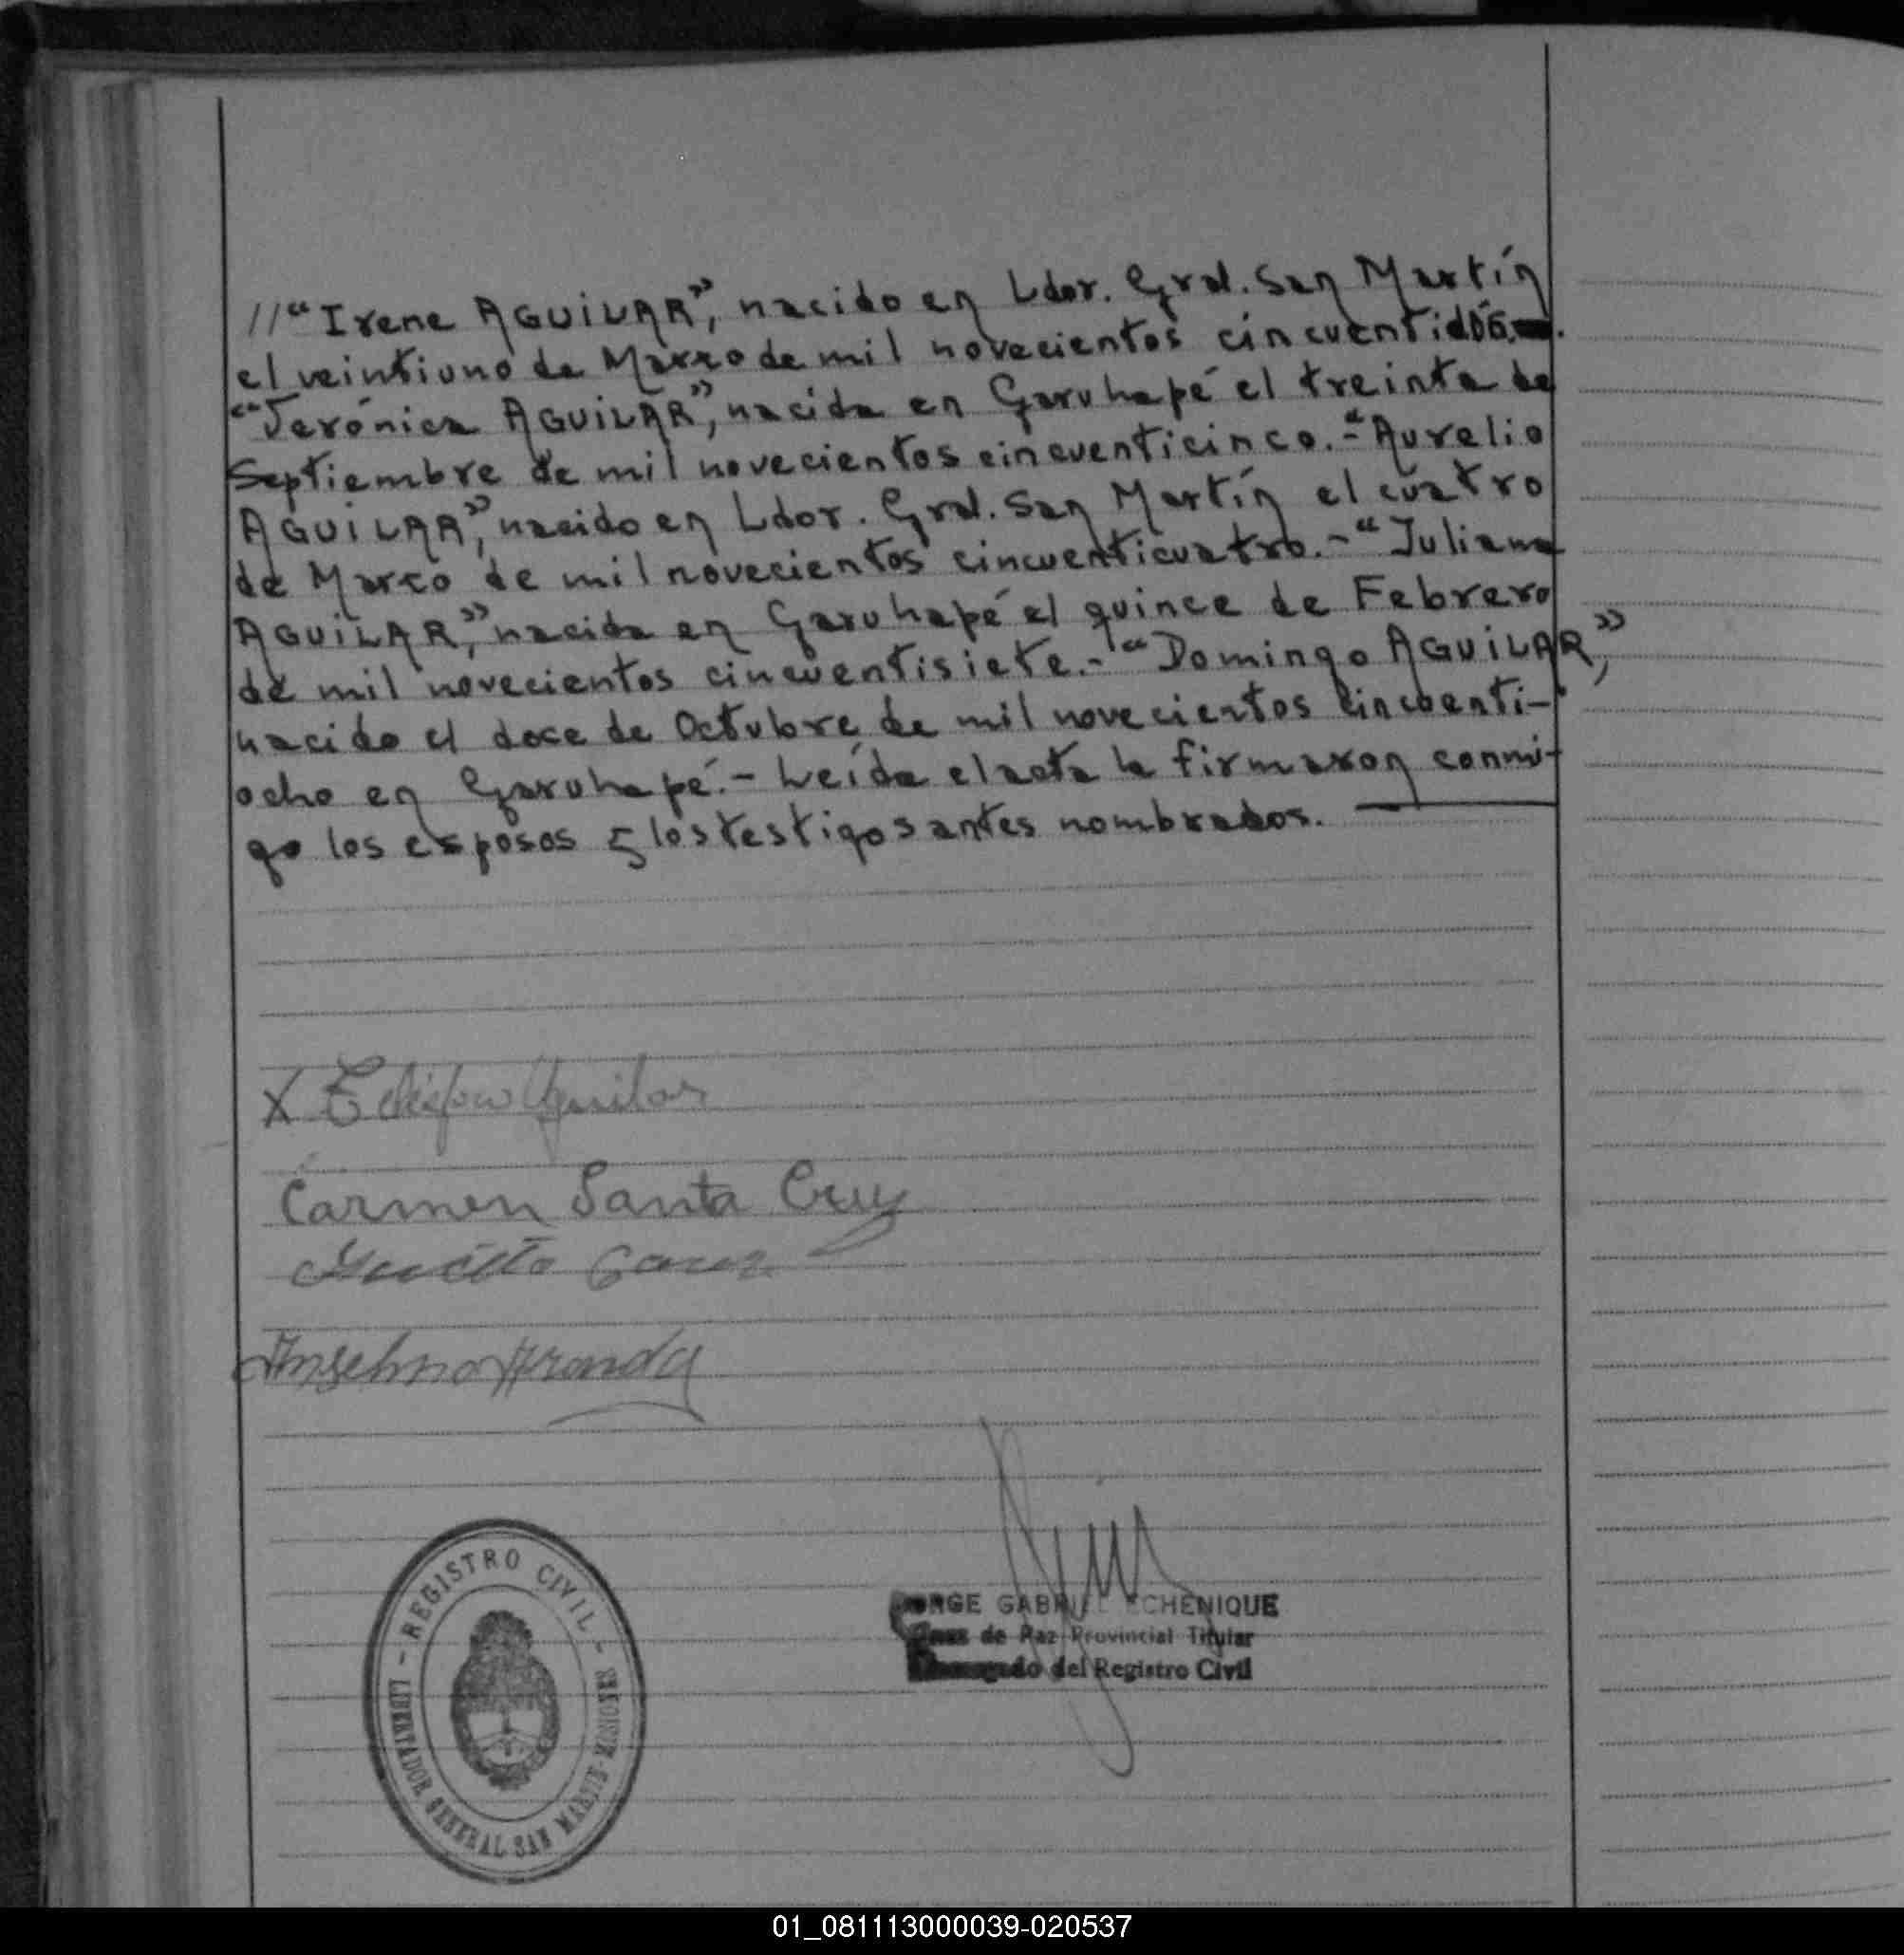 //"Irene AGUILAR", nacido en Ldor. Gral. San Martín
el veintiuno de Marzo de mil novecientos cincuentidós.
"Jerónica AGUILAR", nacida en Garuhapé el treinta de
Septiembre de mil novecientos cincuenticinco.- "Aurelio
AGUILAR", nacido en Ldor. Gral. San Martín el cuatro
de Marzo de mil novecientos cincuenticuatro.- "Juliana
AGUILAR", nacida en Garuhapé el quince de Febrero
de mil novecientos cincuentisiete.- "Domingo AGUILAR",
nacido el doce de Octubre de mil novecientos cincuenti-
ocho en Garuhapé.- Leída el acta la firmaron conmi-
go los esposos y los testigos antes nombrados.
X Aguilar
Carmen Santa Cruz
Anselmo Aranda
REGISTRO CIVIL
LIBERTADOR GENERAL SAN MARTIN - MISIONES
JORGE GABRIEL ECHENIQUE
Juez de Paz Provincial Titular
Encargado del Registro Civil
01_081113000039-020537